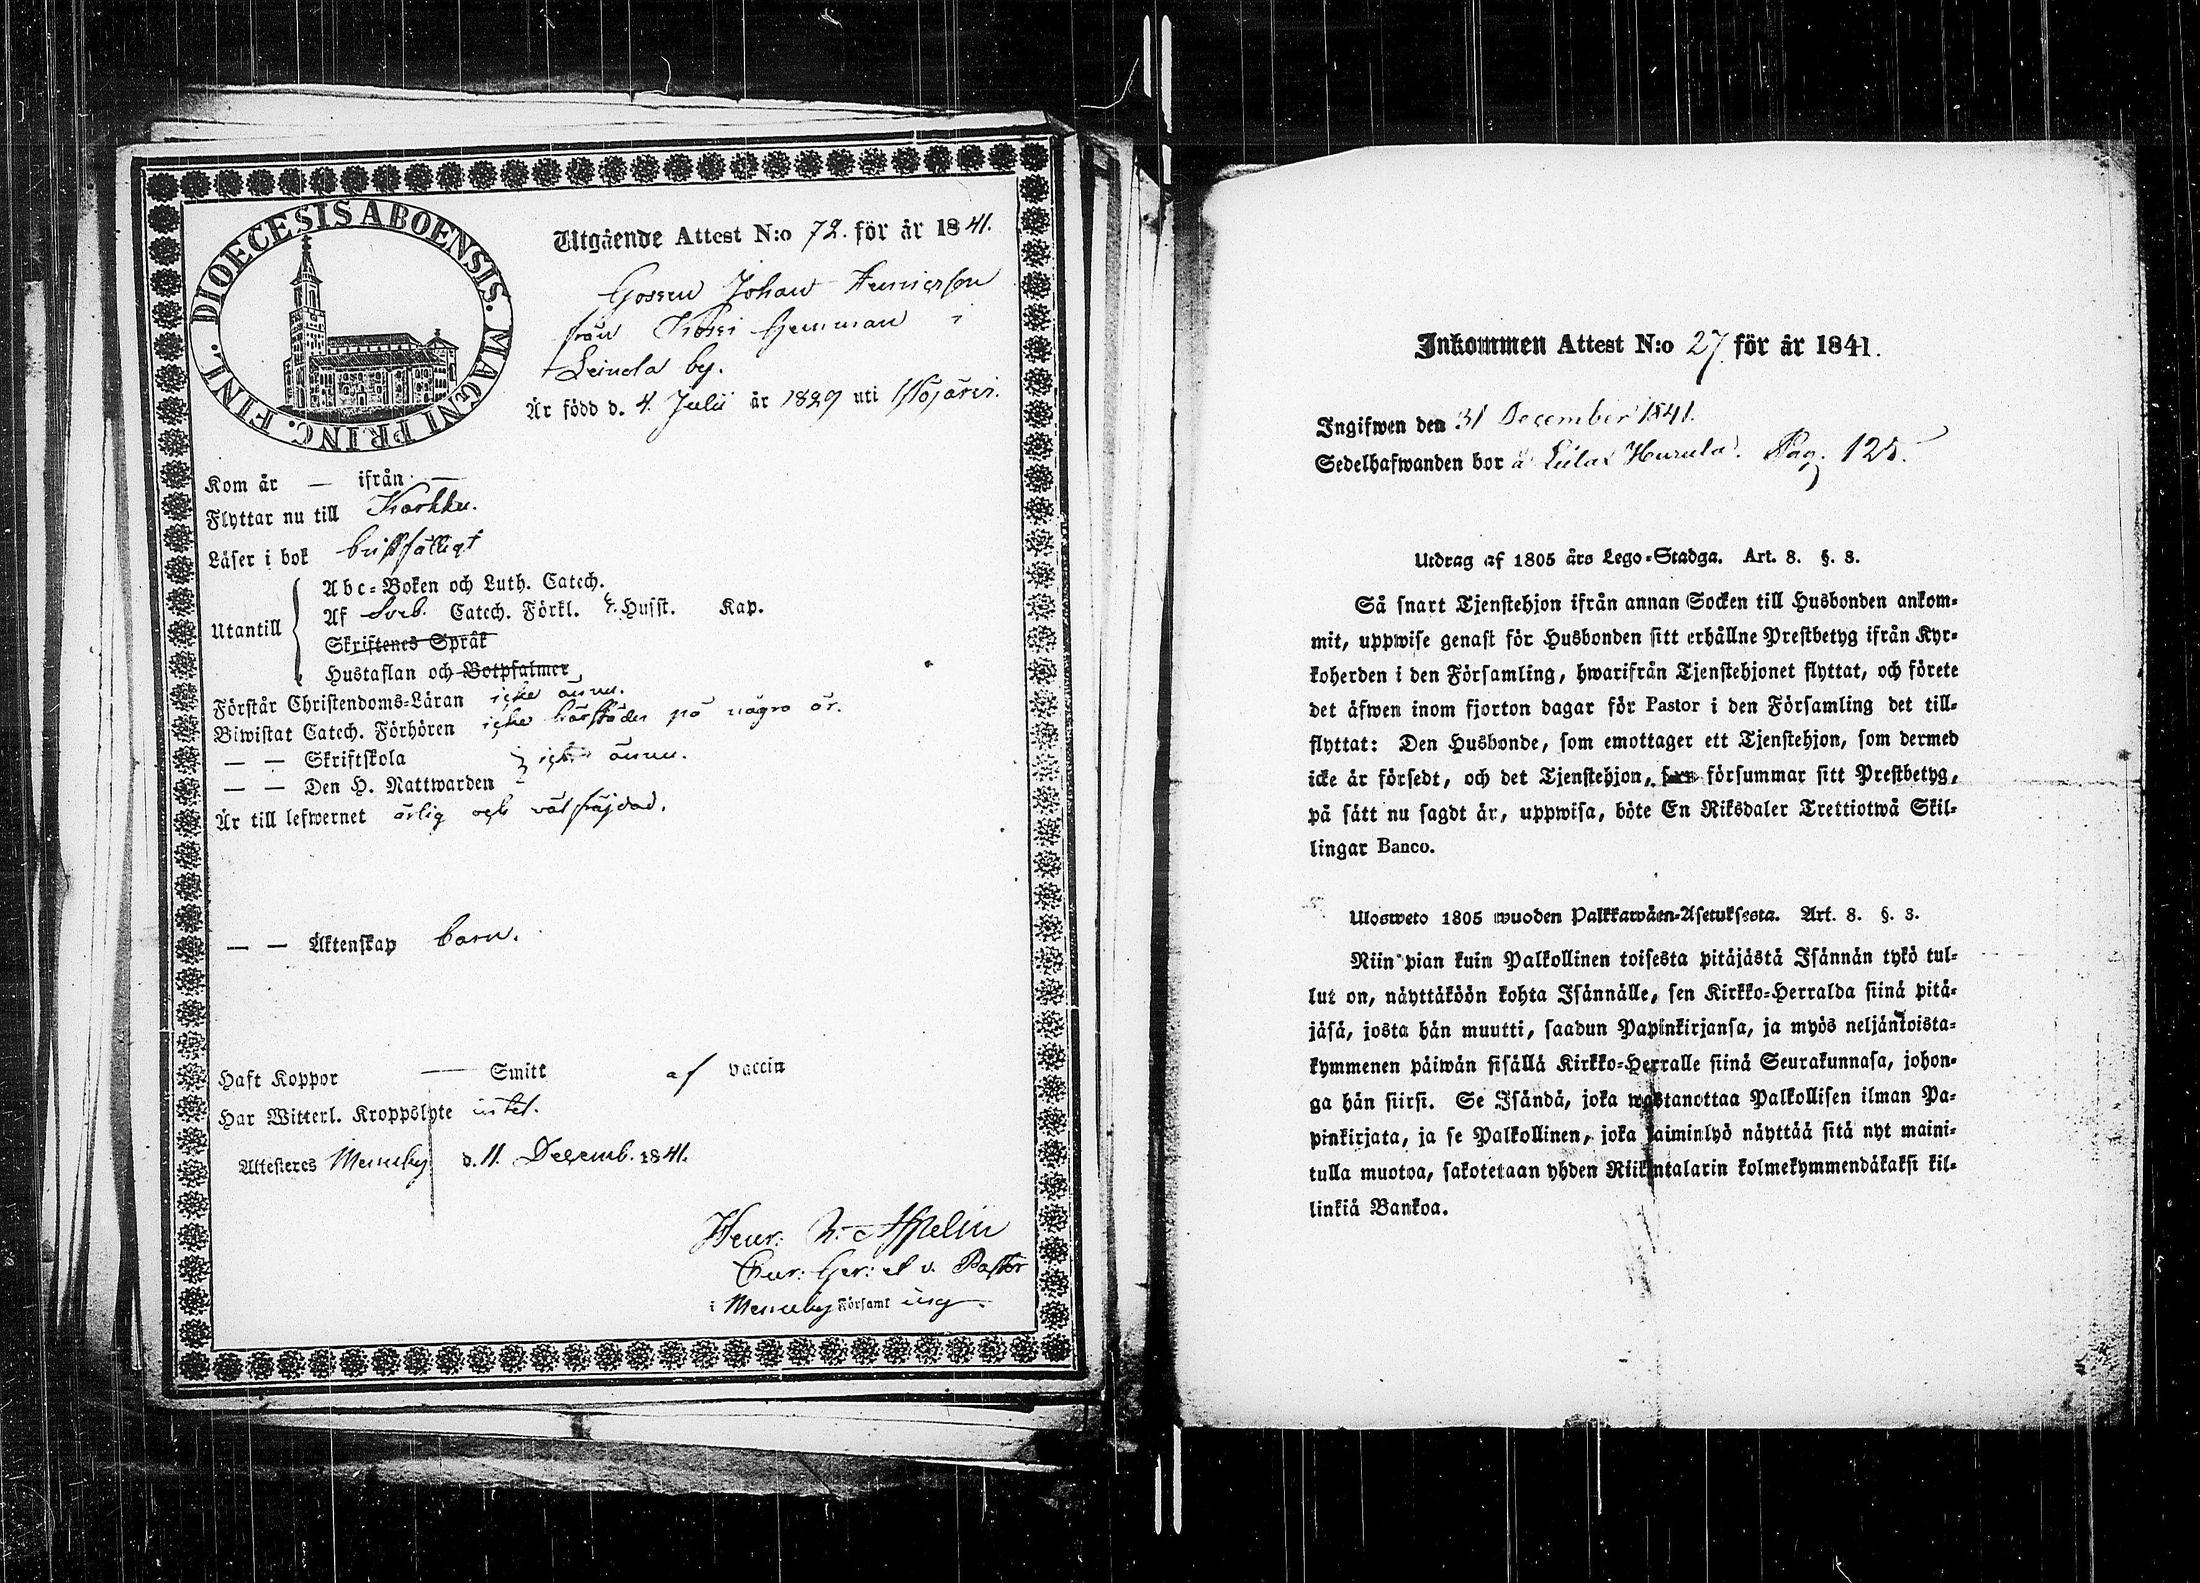 DIOECESIS ABOENSIS. MAGNI PRINC. FINL.
Utgående Attest N:o 72. för år 1841.
Gossen Johan
från Kossi hemman i
Leinola by.
Är född d. 4. Julii år 1829 uti
Kom år — ifrån —
Flyttar nu till Karkku.
Läser i bok bristfälligt
Utantill
Abc-Boken och Luth. Catech.
Af Sveb. Catech. Förkl. Husst. Kap.
Skriftenes Språk
Hustaflan och Botpsalmer
Förstår Christendoms-Läran icke ännu.
Biwistat Catech. Förhören icke härstädes på några år.
— — Skriftskola
— — Den H. Nattwarden } icke ännu.
Är till lefwernet ärlig och välfräjdad.
— — Äktenskap barn.
Haft Koppor — Smitt af vaccin
Har Witterl. Kroppslyte intet.
Attesteres Messuby d. 11. Decemb. 1841.
Henr: Aspelin
v. Pastor
i Messuby Församling.
Inkommen Attest N:o 27 för år 1841.
Ingifwen den 31 December 1841.
Sedelhafwanden bor å Lielax Hurula. Pag. 125.
Utdrag af 1805 års Lego-Stadga. Art. 8. §. 3.
Så snart Tjenstehjon ifrån annan Socken till Husbonden ankom-
mit, uppwise genast för Husbonden sitt erhållne Prestbetyg ifrån Kyr-
koherden i den Församling, hwarifrån Tjenstehjonet flyttat, och förete
det äfwen inom fjorton dagar för Pastor i den Församling det till-
flyttat: Den Husbonde, som emottager ett Tjenstehjon, som dermed
icke är försedt, och det Tjenstehjon, som försummar sitt Prestbetyg,
på sätt nu sagdt är, uppwisa, böte En Riksdaler Trettiotwå Skil-
lingar Banco.
Ulosweto 1805 wuoden Palkkawäen-Asetuksesta. Art. 8. §. 3.
Niin pian kuin Palkollinen toisesta pitäjästä Isännän tykö tul-
lut on, näyttäköön kohta Isännälle, sen Kirkko-Herralda siinä pitä-
jäsä, josta hän muutti, saadun Papinkirjansa, ja myös neljäntoista-
kymmenen päiwän sisällä Kirkko-Herralle siinä Seurakunnasa, johon-
ga hän siirsi. Se Isändä, joka wastanottaa Palkollisen ilman Pa-
pinkirjata, ja se Palkollinen, joka laiminlyö näyttää sitä nyt maini-
tulla muotoa, sakotetaan yhden Riikintalarin kolmekymmendäkaksi kil-
linkiä Bankoa.